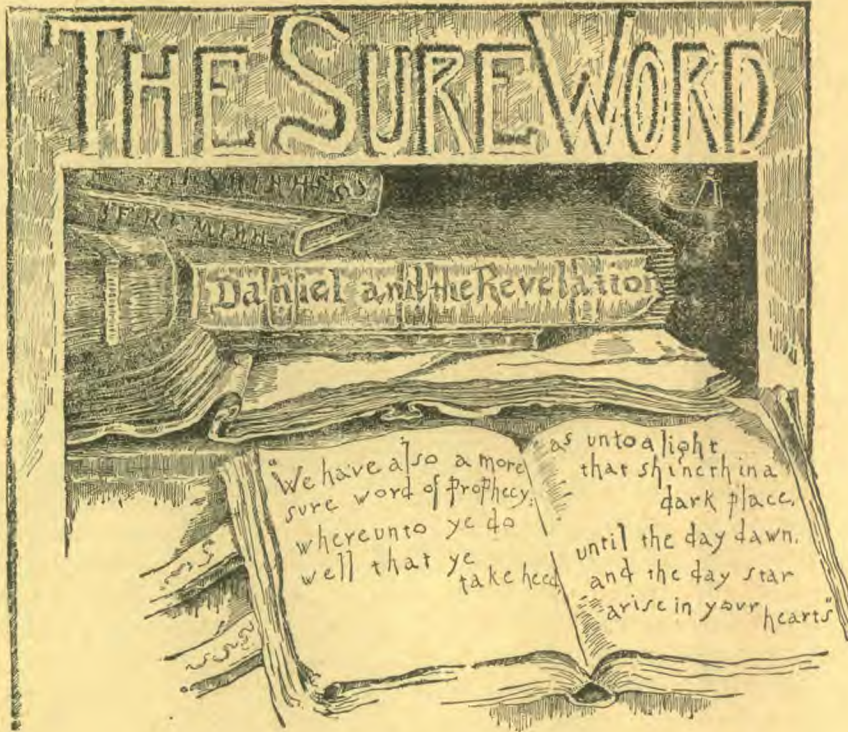 THE SURE WORD
ISAIAH
JEREMIAH
Daniel and the Revelation
"We have also a more
sure word of prophecy;
whereunto ye do
well that ye
take heed,
as unto a light
that shineth in a
dark place,
until the day dawn,
and the day star
arise in your hearts"